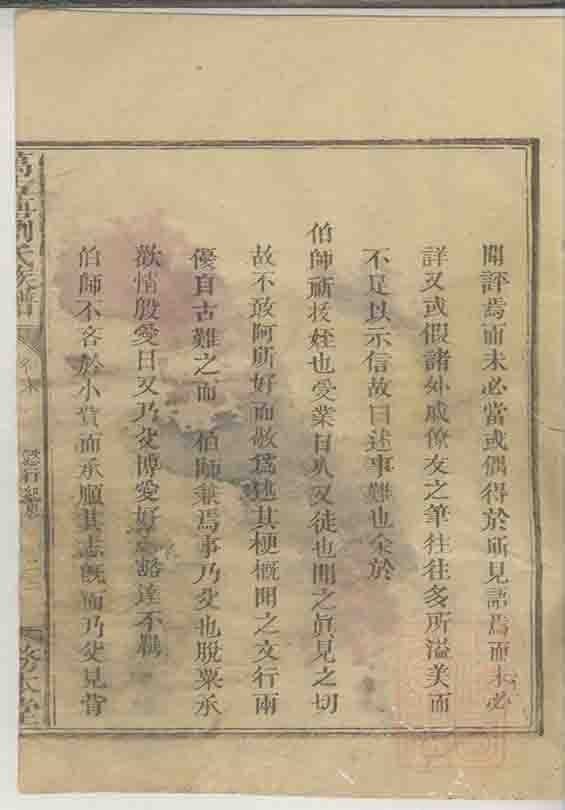 聞評焉而未必當或偶得於所見語焉而未必
詳又或假諸外戚僚友之筆往往多所溢美而
不足以示信故曰述事難也余於
伯師祈技姪也受業日久又徒也聞之眞見之切
故不敢阿所好而敬爲述其梗概聞之文行兩
優自古難之而 伯師兼焉事乃父也脫粟承
歡情殷愛日又乃父博愛好 豁達不羈
伯師不吝於小貲而承順其志旣而乃父見背
劉氏族譜
卷末
敦本堂